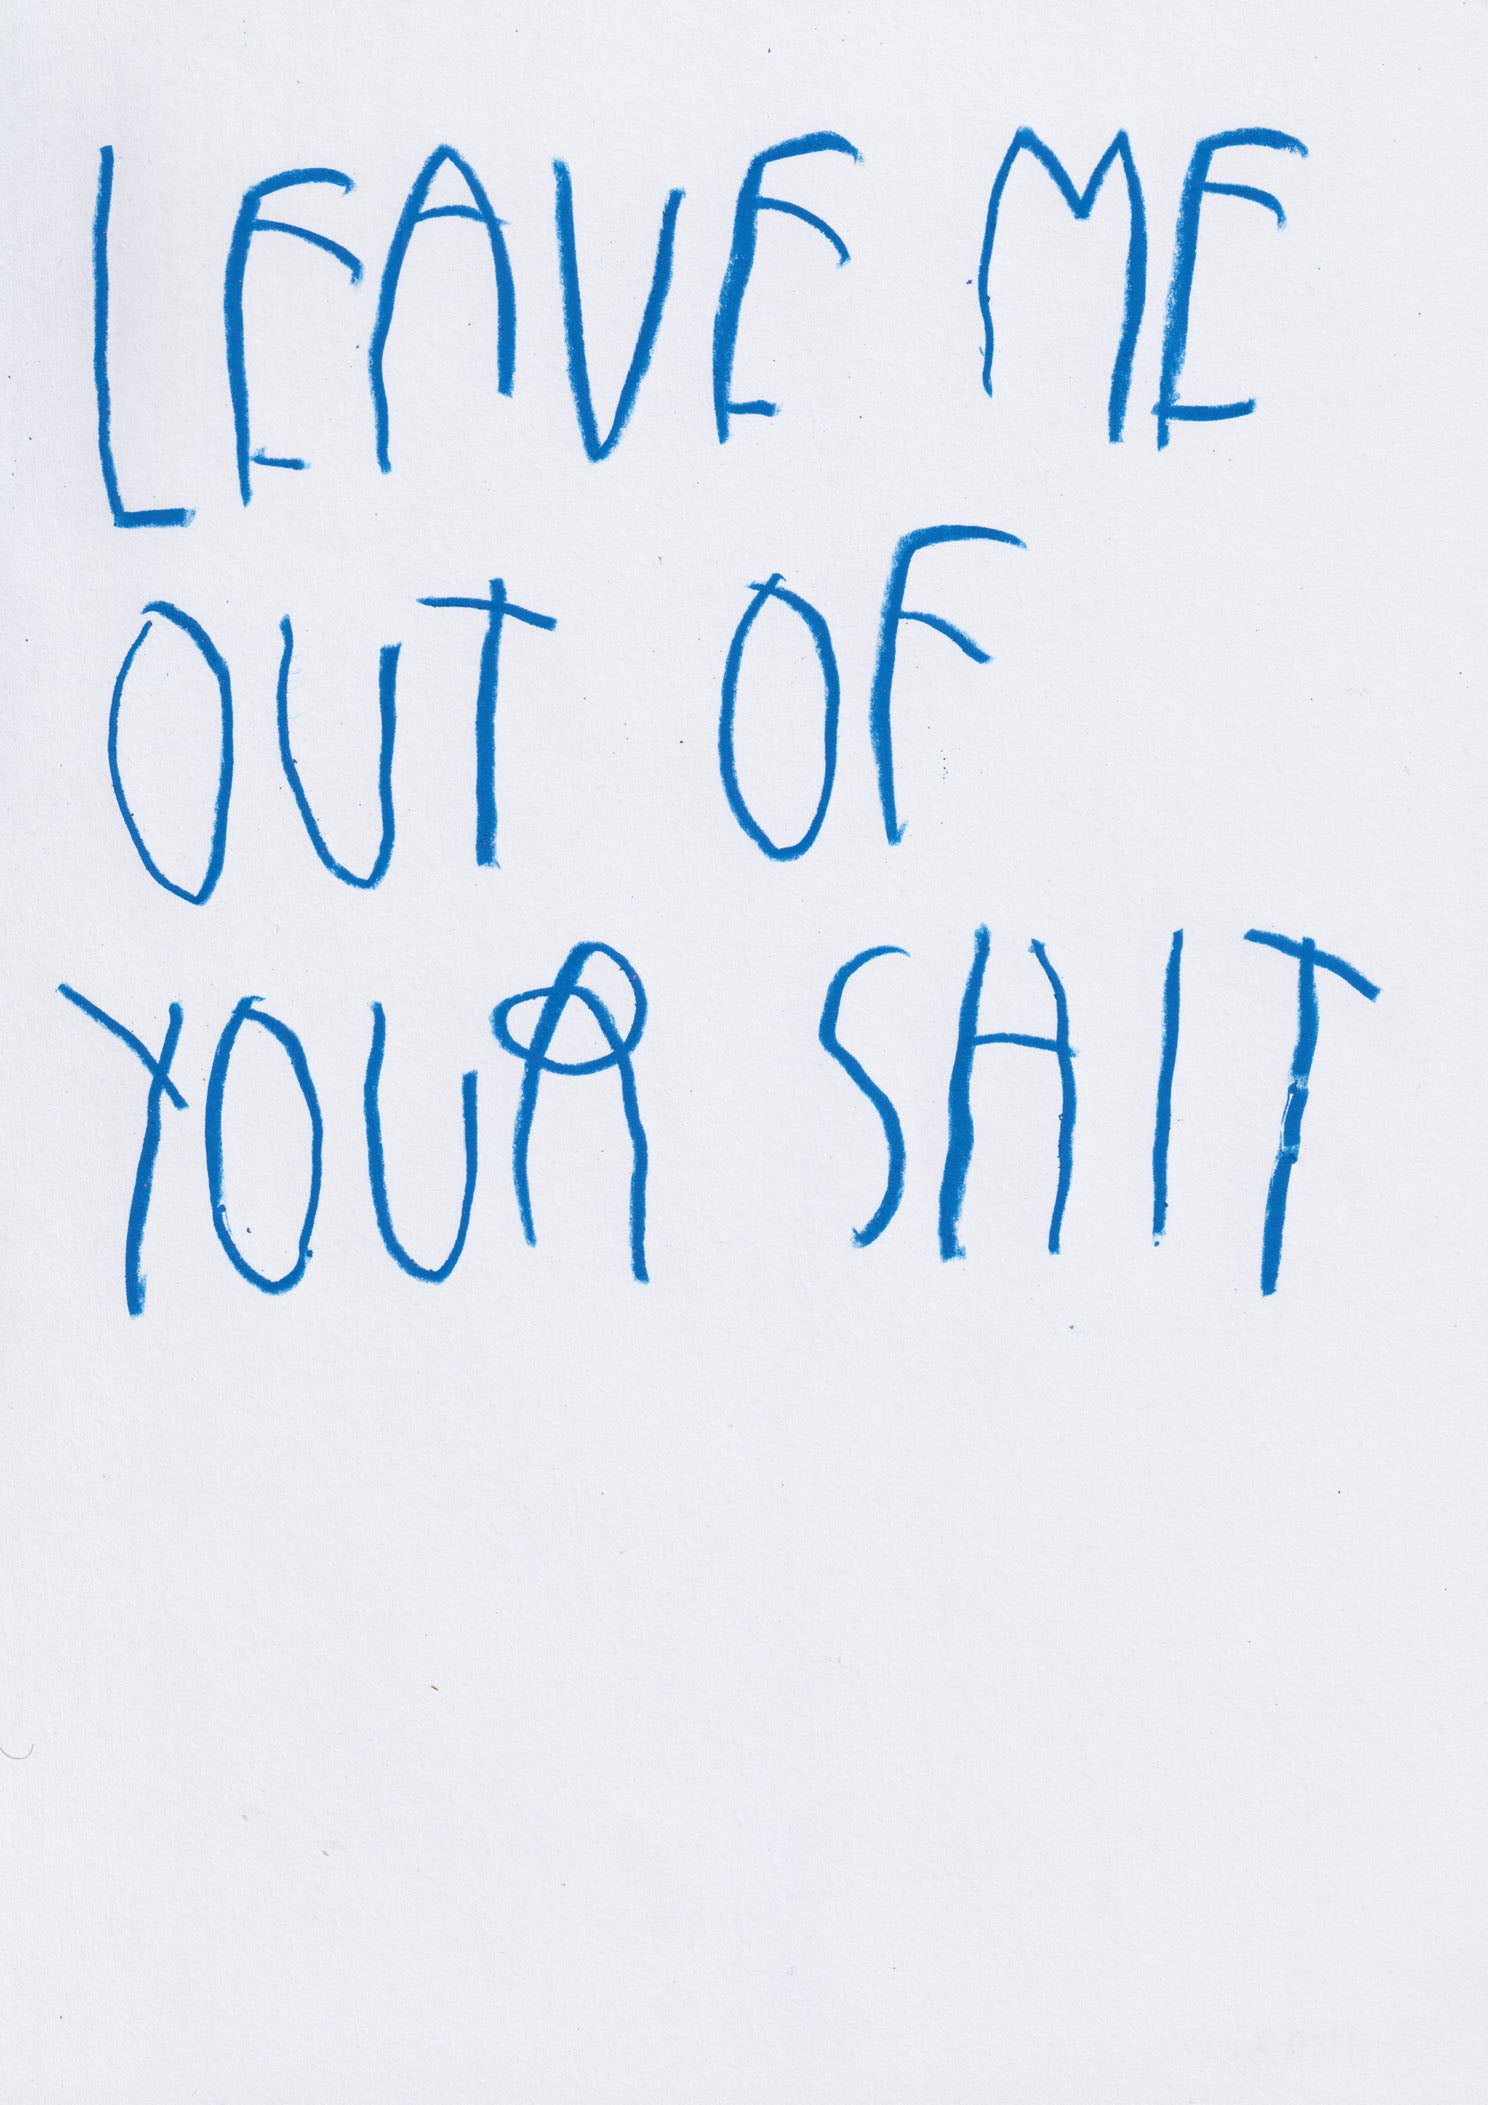 LEAVE ME
OUT OF
YOUR SHIT